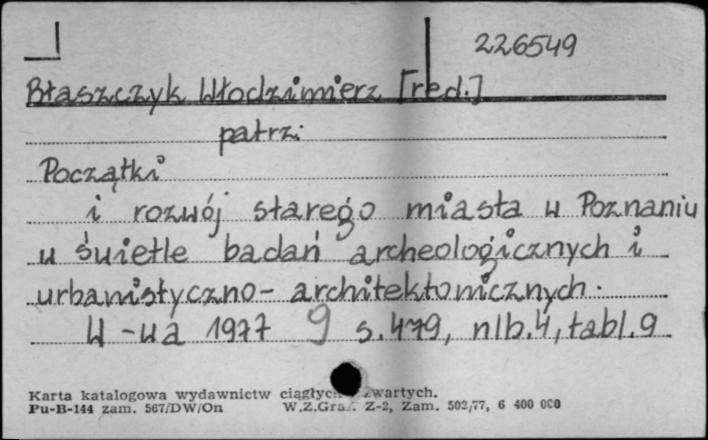 226549
Błaszczyk Włodzimierz [red.]
patrz:
Początki
i rozwój starego miasta w Poznaniu
w świetle badań archeologicznych i
urbanistyczno-architektonicznych.
W-wa 1977 9 s.479, nlb.4, tabl.9
Karta katalogowa wydawnictw
Pu-B-144 zam. 567/DW/On W.Z.Graf. Z-2, Zam. 502/77, 6 400 000